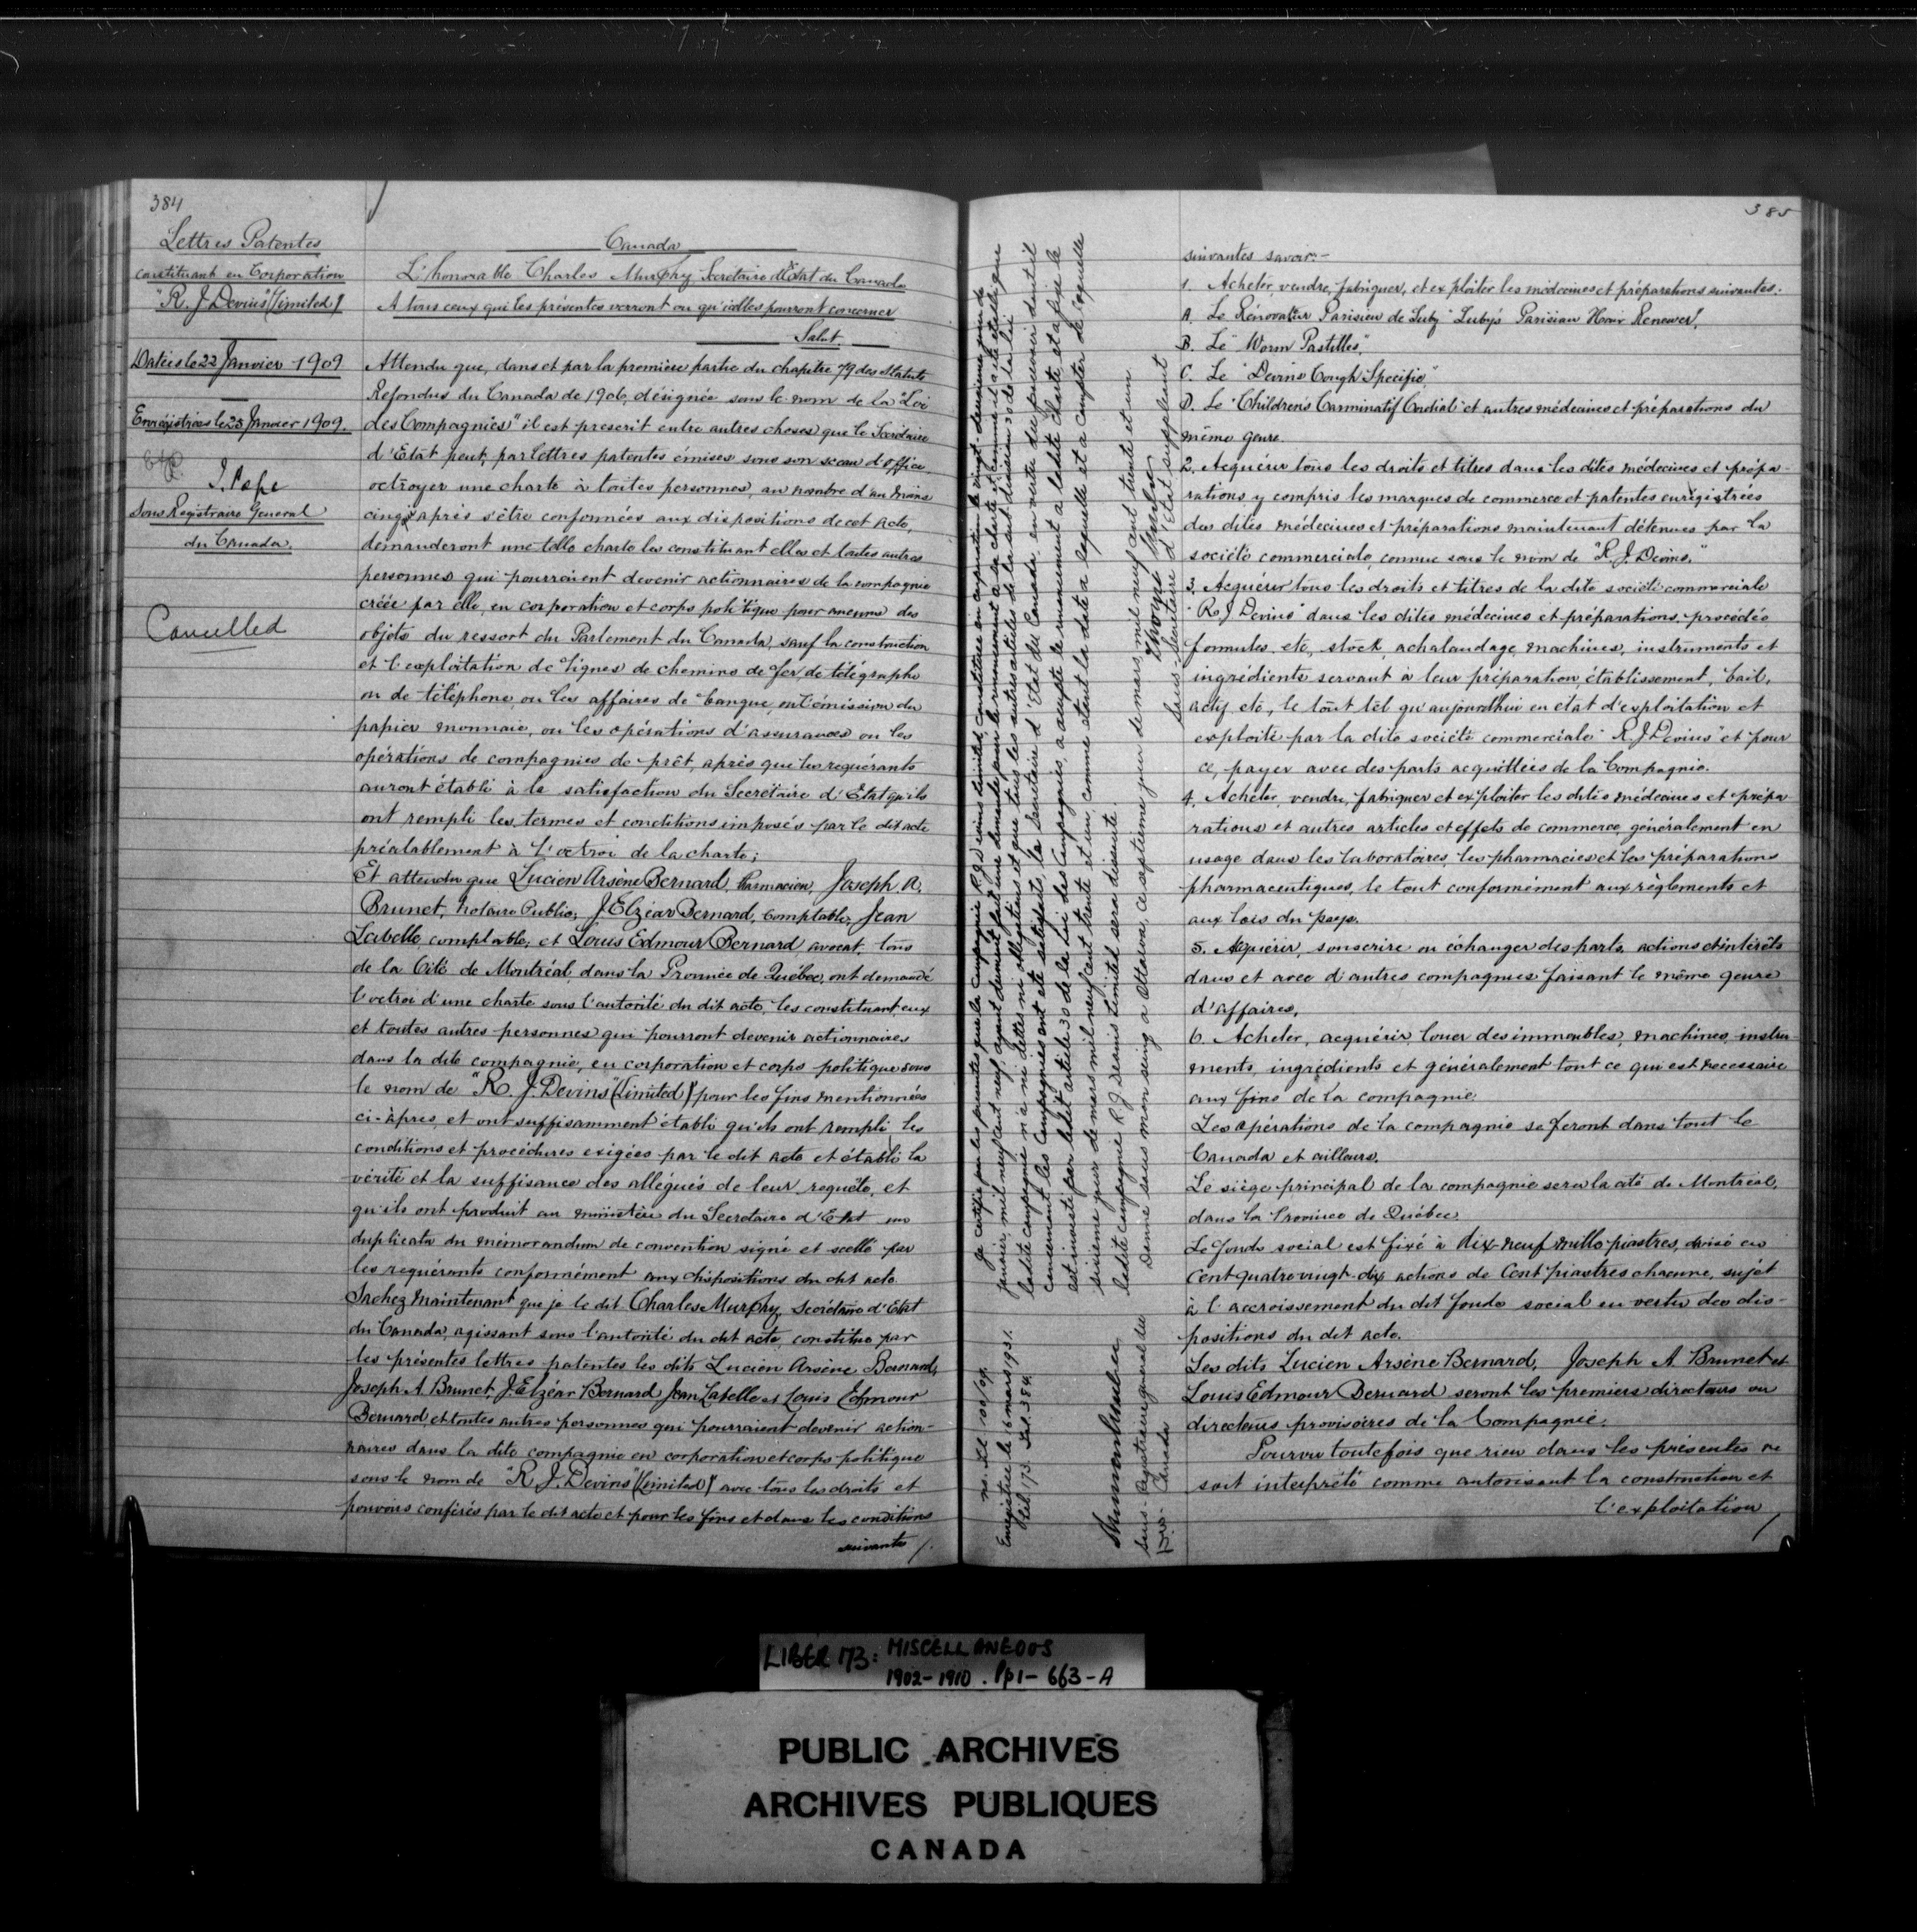 384
Lettres Patentes
constituant en Corporation
"R. J. Devins" (Limited)
Datées le 22 Janvier 1909
Enrégistrées le 25 Janvier 1909.
J. Pope
Sous Registraire Général
du Canada.
Cancelled
Canada
L'honorable Charles Murphy Secrétaire d'Etat du Canada
A tous ceux que les présentes verront ou qu'icelles pourront concerner
Salut
Attendu que, dans et par la première partie du chapitre 79 des Statuts
Refondus du Canada de 1906, désignée sous le nom de la "Loi
des Compagnies" il est prescrit entre autres choses que le Secrétaire
d'Etat peut, par lettres patentes émises sous son sceau d'office
octroyer une charte à toutes personnes, au nombre d'au moins
cinq, après s'être conformées aux dispositions de cet Acte,
demanderont une telle charte les constituant elles et toutes autres
personnes qui pourraient devenir actionnaires de la compagnie
créée par elle, en corporation et corps politique pour aucuns des
objets du ressort du Parlement du Canada, sauf la construction
et l'exploitation de lignes de chemins de fer, de télégraphe
ou de téléphone, ou les affaires de banque, ou l'émission du
papier monnaie, ou les opérations d'assurances ou les
opérations de compagnies de prêt, après que les requérants
auront établi à la satisfaction du Secrétaire d'Etat qu'ils
ont rempli les termes et conditions imposés par le dit acte
préalablement à l'octroi de la charte;
Et attendu que Lucien Arsène Bernard, Pharmacien, Joseph A.
Brunet, Notaire Public, J Elzéar Bernard, Comptable, Jean
Labelle, comptable, et Louis Edmour Bernard, avocat, tous
de la Cité de Montréal, dans la Province de Québec, ont demandé
l'octroi d'une charte sous l'autorité du dit acte, les constituant eux
et toutes autres personnes qui pourront devenir actionnaires
dans la dite compagnie, en corporation et corps politique sous
le nom de "R. J. Devins" (Limited) pour les fins mentionnées
ci-après, et ont suffisamment établi qu'ils ont rempli les
conditions et procédures exigées par le dit acte et établi la
vérité et la suffisance des allégués de leur requête, et
qu'ils ont produit au ministère du Secrétaire d'Etat un
duplicata du mémorandum de convention signé et scellé par
les requérants conformément aux dispositions du dit acte.
Sachez maintenant que je le dit Charles Murphy, Secrétaire d'Etat
du Canada, agissant sous l'autorité du dit acte, constitue par
les présentes lettres patentes les dits Lucien Arsène Bernard,
Joseph A. Brunet, J Elzéar Bernard, Jean Labelle et Louis Edmour
Bernard et toutes autres personnes qui pourraient devenir action-
naires dans la dite compagnie en corporation et corps politique
sous le nom de "R J. Devins" (Limited) avec tous les droits et
pouvoirs conférés par le dit acte et pour les fins et dans les conditions
suivantes /.
Je certifie par les présentes que la compagnie R. J. Devins Limited, constituée en corporation le vingt-deuxième jour de
janvier, mil neuf cent neuf, ayant dûment fait une demande pour le renoncement à sa charte et comme il a été établi que
ladite compagnie n'a ni dettes ni obligations et que tous les autres articles de la sub-division 30 de la loi
concernant les Compagnies ont été satisfaits, le Secrétaire d'Etat du Canada, en vertu du pouvoir dont il
est investi par ledit article 30 de la Loi des Compagnies, a accepté le renoncement à ladite Charte et a fixé le
sixième jour de mars mil neuf cent trente et un, comme étant la date à laquelle et à compter de laquelle
ladite compagnie R J Devins Limited sera dissoute.
Donné sous mon seing à Ottawa, ce septième jour de mars, mil neuf cent trente et un
Thomas Mulvey
Sous-Secrétaire d'Etat suppléant
Enregistrée le 16 mars 1931.
Lib. 173. Fol. 384
Sous-Registraire général du
Canada
385
suivantes savoir:-
1. Acheter, vendre, fabriquer, et exploiter les médecines et préparations suivantes:
A. Le Rénovateur Parisien de Luby "Luby's Parisian Hair Renewer",
B. Le "Worm Pastilles",
C. Le "Devins Cough Specific,"
D. Le "Children's Carminatif Cordial" et autres médecines et préparations du
même genre.
2. Acquérir tous les droits et titres dans les dites médecines et prépa-
rations y compris les marques de commerce et patentes enrégistrées
des dites médecines et préparations maintenant détenues par la
société commerciale, connue sous le nom de "R. J. Devins."
3. Acquérir tous les droits et titres de la dite société commerciale
"R. J Devins" dans les dites médecines et préparations, procédés
formules, etc, stock, achalandage, machines, instruments et
ingrédients servant à leur préparation, établissement, bail,
actif, etc, le tout tel qu'aujourd'hui en état d'exploitation et
exploité par la dite société commerciale "R. J Devins" et pour
ce, payer avec des parts acquittées de la Compagnie.
4. Acheter, vendre, fabriquer et exploiter les dites médecines et prépa-
rations et autres articles et effets de commerce, généralement en
usage dans les laboratoires, les pharmacies et les préparations
pharmaceutiques, le tout conformément aux règlements et
aux lois du pays.
5. Acquérir, souscrire ou échanger des parts, actions et intérêts
dans et avec d'autres compagnies faisant le même genre
d'affaires.
6. Acheter, acquérir, louer des immeubles, machines, instru-
ments, ingrédients et généralement tout ce qui est nécessaire
aux fins de la compagnie.
Les opérations de la compagnie se feront dans tout le
Canada et ailleurs.
Le siège principal de la compagnie sera la cité de Montréal,
dans la Province de Québec.
Le fonds social est fixé à dix-neuf mille piastres, divisé en
Cent quatre vingt-dix actions de Cent piastres chacune, sujet
à l'accroissement du dit fonds social en vertu des dis-
positions du dit acte.
Les dits Lucien Arsène Bernard, Joseph A Brunet et
Louis Edmour Bernard seront les premiers directeurs ou
directeurs provisoires de la Compagnie.
Pourvu toutefois que rien dans les présentes ne
soit interprété comme autorisant la construction et
l'exploitation /
LIBER 173: MISCELLANEOUS
1902-1910. Pp 1-663-A
PUBLIC ARCHIVES
ARCHIVES PUBLIQUES
CANADA